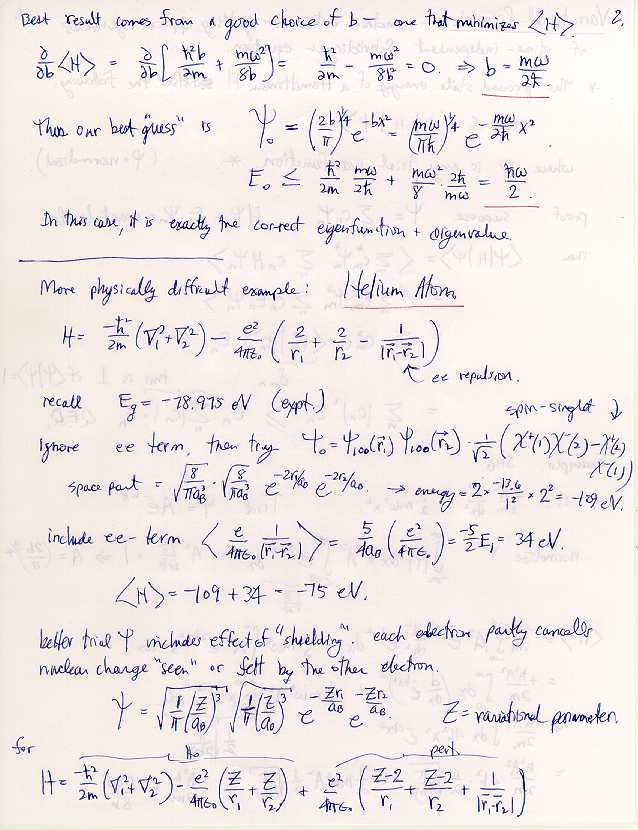 Best result comes from a good choice of b — one that minimizes <H>. 2.
∂/∂b <H> = ∂/∂b [ ħ²b/2m + mω²/8b ] = ħ²/2m - mω²/8b² = 0. ⇒ b = mω/2ħ.
Thus our best "guess" is Ψ₀ = (2b/π)^¼ e^(-bx²) = (mω/πħ)^¼ e^(-mω/2ħ x²)
E₀ ≤ ħ²/2m mω/2ħ + mω²/8 · 2ħ/mω = ħω/2.
In this case, it is exactly the correct eigenfunction + eigenvalue.
More physically difficult example: Helium Atom.
H = -ħ²/2m (∇₁² + ∇₂²) - e²/4πε₀ ( 2/r₁ + 2/r₂ - 1/|r⃗₁-r⃗₂| )
ee repulsion.
recall Eg = -78.975 eV (expt.)
spin-singlet
Ignore ee term, then try Ψ₀ = Ψ₁₀₀(r⃗₁) Ψ₁₀₀(r⃗₂) · 1/√2 ( χ⁺(1)χ⁻(2) - χ⁺(2)χ⁻(1) )
space part = √(8/πa_B³) · √(8/πa_B³) e^(-2r₁/a_B) e^(-2r₂/a_B). → energy = 2 × -13.6/1² × 2² = -109 eV.
include ee-term < e/4πε₀ 1/|r⃗₁-r⃗₂| > = 5/4a_B ( e²/4πε₀ ) = -5/2 E₁ = 34 eV.
<H> = -109 + 34 = -75 eV.
better trial Ψ includes effect of "shielding". each electron partly cancels
nuclear charge "seen" or felt by the other electron.
Ψ = √(1/π (Z/a_B)³) √(1/π (Z/a_B)³) e^(-Zr₁/a_B) e^(-Zr₂/a_B). Z = variational parameter.
for
H₀ pert.
H = -ħ²/2m (∇₁² + ∇₂²) - e²/4πε₀ ( Z/r₁ + Z/r₂ ) + e²/4πε₀ ( Z-2/r₁ + Z-2/r₂ + 1/|r⃗₁-r⃗₂| )